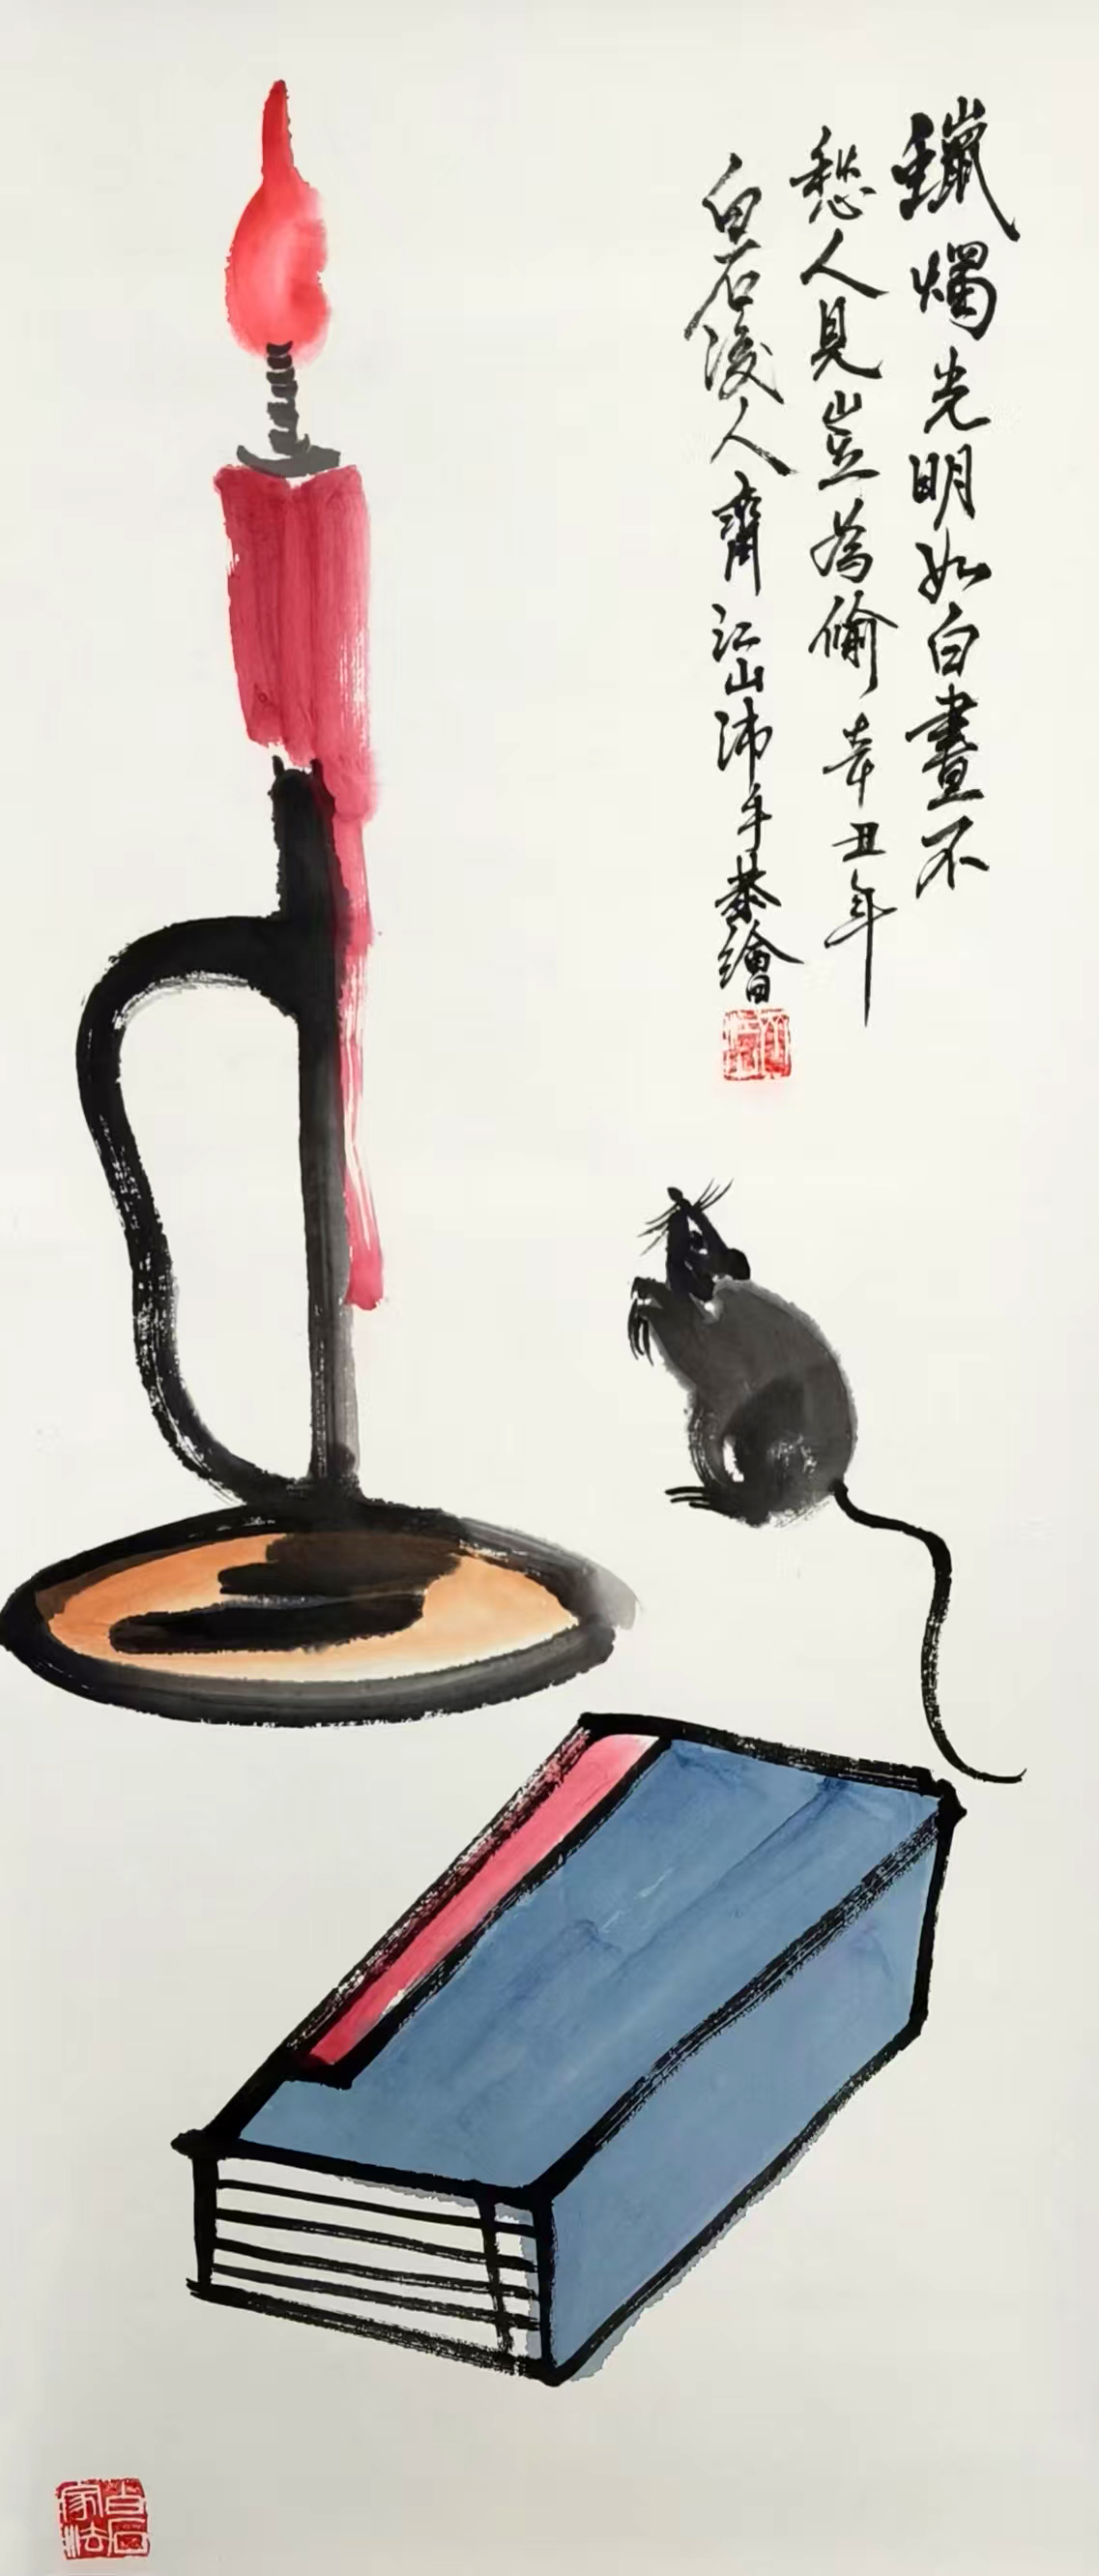 蠟燭光明如白晝不
愁人見豈為偷 辛丑年
白石後人齊江山沐手恭繪
白石家法